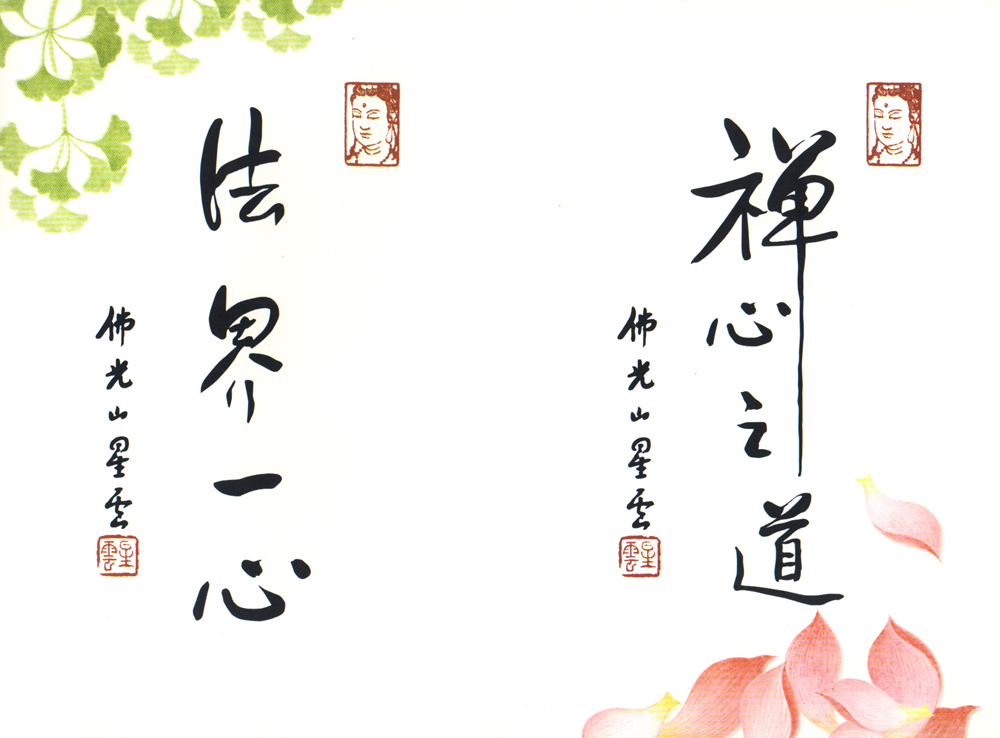 禅心之道
佛光山星雲
星雲
法界一心
佛光山星雲
星雲